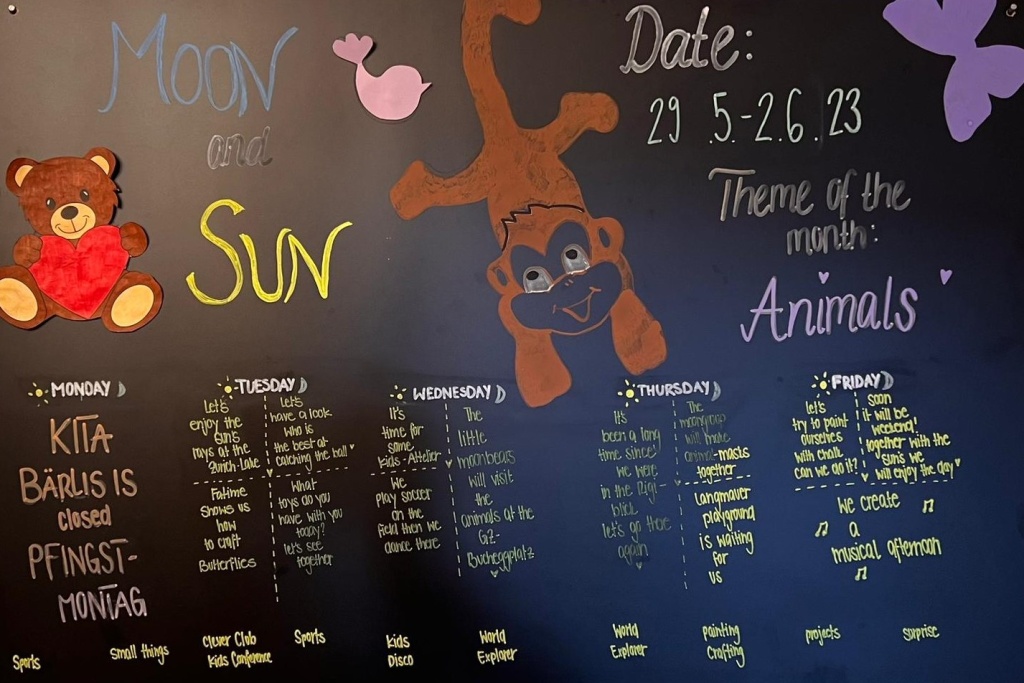 Moon
and
Sun
Date:
29.5-2.6.23
Theme of the
month:
Animals
MONDAY
KITA
BÄRLIS IS
closed
PFINGST-
MONTAG
Sports
small things
TUESDAY
Let's
enjoy the
sun's
rays at the
Zurich-Lake
Let's
have a look
who is
the best at
catching the ball
Fatime
shows us
how
to craft
Butterflies
What
toys do you
have with you
today?
let's see
together
Clever Club
Kids Conference
Sports
WEDNESDAY
It's
time for
some
Kids-Attelier
The
little
moonbears
will visit
the
animals at the
GZ-
Bucheggplatz
We
play soccer
on the
field then we
dance there
Kids
Disco
World
Explorer
THURSDAY
It's
been a long
time since
we were
in the Rigi-
blick
let's go there
again
The
moongroup
will make
animal-masks
together
Langmauer
playground
is waiting
for
us
World
Explorer
painting
Crafting
FRIDAY
let's
try to paint
ourselves
with chalk
can we do it?
soon
it will be
weekend!
together with the
sun's we
will enjoy the day
we create
a
musical afternoon
projects
surprise